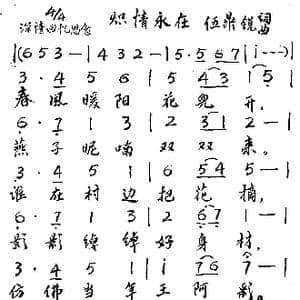 4/4
深情回忆思念 炽情永在 伍鼎锐词曲
|(6 5 3 - | 4 3 2 - | 5· 5 6 7 | i - - -)|
3· 4 5 5 | 6 5 4 3 | 1 5 |
春风暖阳 花儿开,
6· 7 1 3 | 2 2 3 1 | 2 - |
燕子呢喃 双双来。
3· 4 5 1 | 6 5 4 | 5 - |
谁在村边把花摘,
6· 7 1 3 | 2 6 7 | 1 - |
影影绰绰好身材,
3· 4 5 1 | i 7 6 | 7 - |
仿佛当年王阿彩,